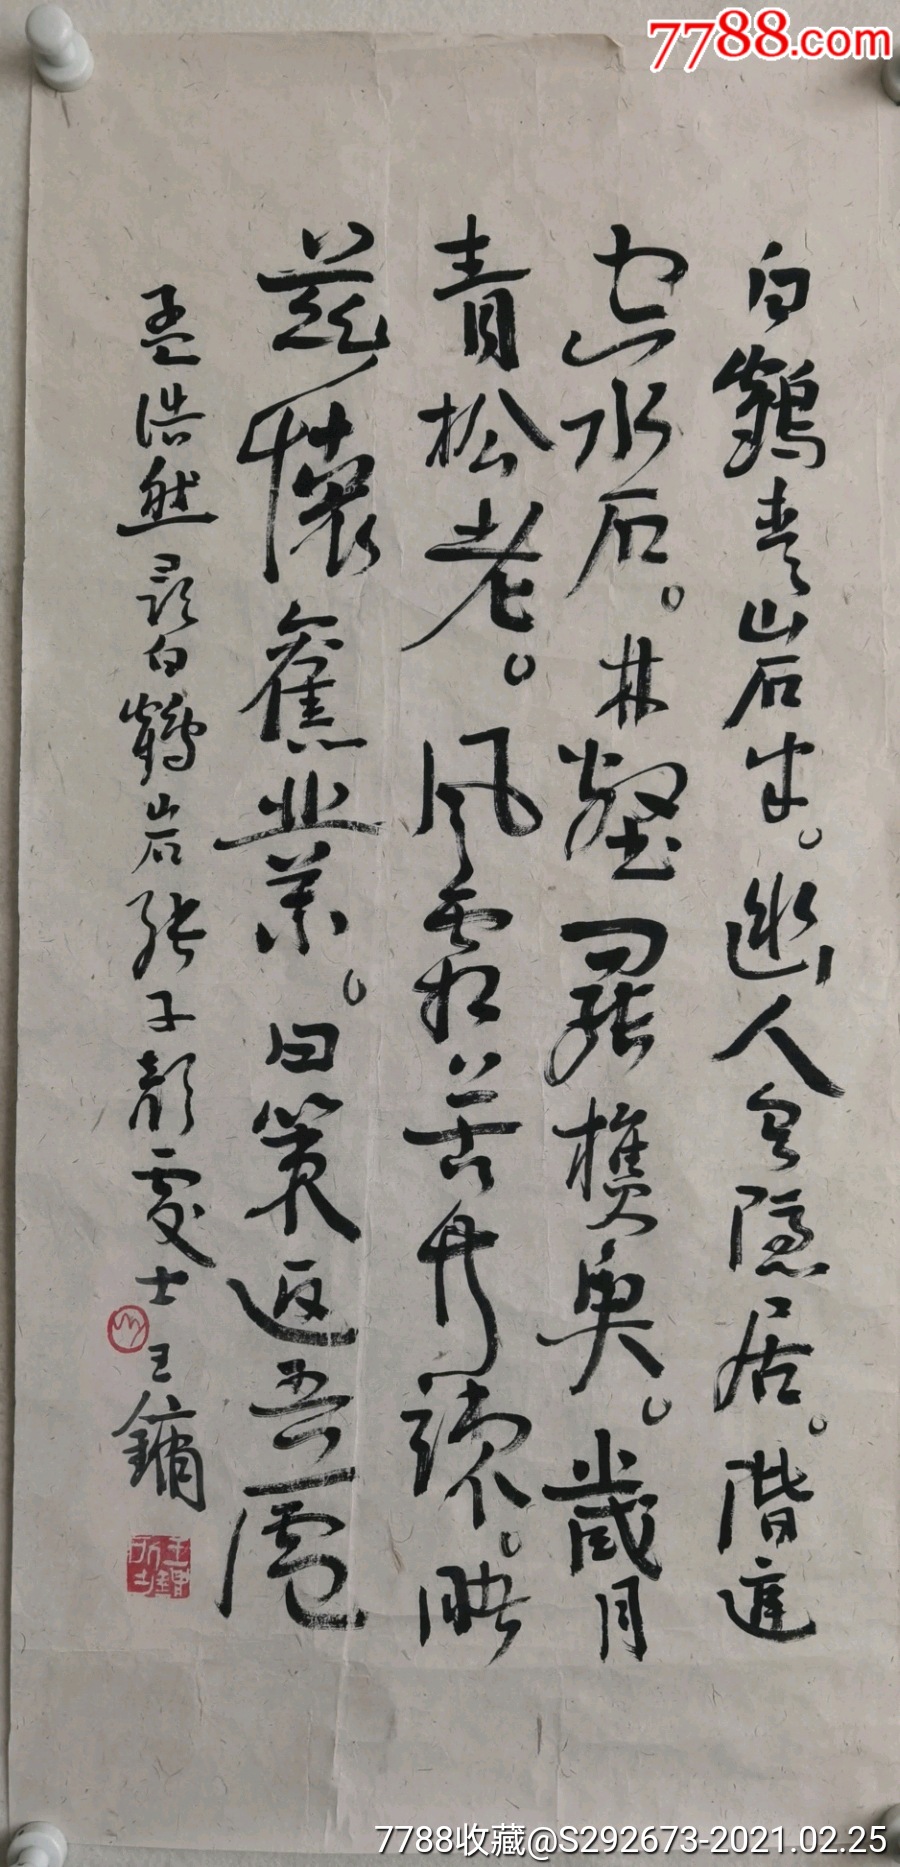 7788.com
白鶴青岩半。幽人有隱居。階庭
空水石。林壑罷樵漁。歲月
青松老。風霜苦竹疎。睹
茲懷舊業。回策返吾廬
孟浩然尋白鶴岩張子顏處士 王鏞
7788收藏@S292673-2021.02.25